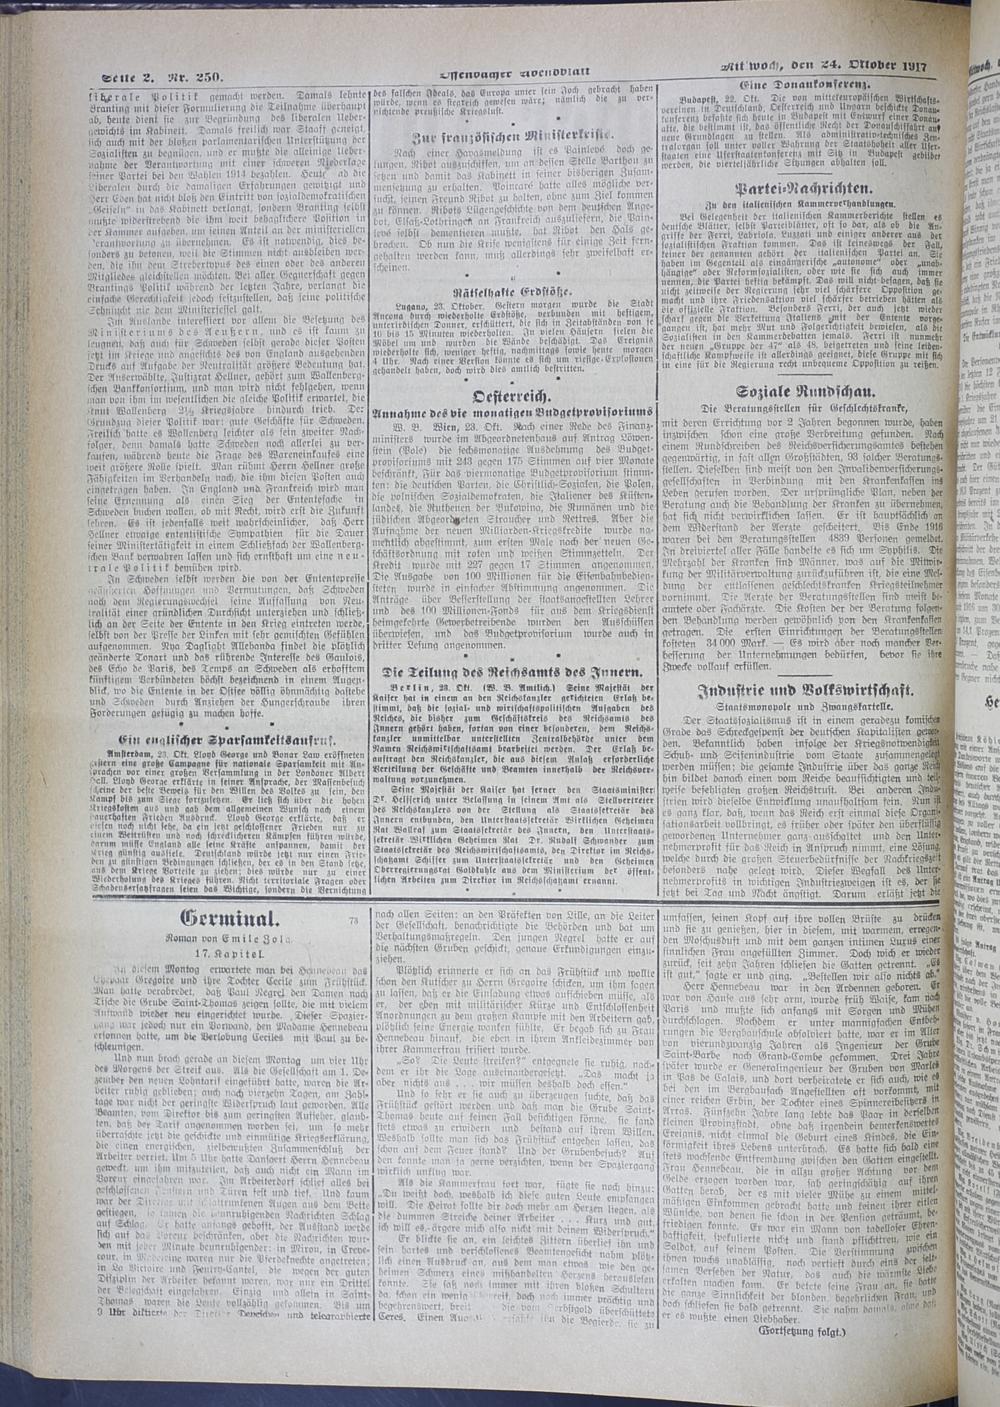 Seite 2. Nr. 250.
Offenbacher Abendblatt
Mittwoch, den 24. Oktober 1917
liberale Politik gemacht werden. Damals lehnte
Branting mit dieser Formulierung die Teilnahme überhaupt
ab, heute dient sie zur Begründung des liberalen Ueber-
gewichts im Kabinett. Damals freilich war Staaff geneigt,
sich auch mit der bloßen parlamentarischen Unterstützung der
Sozialisten zu begnügen, und er mußte die alleinige Ueber-
nahme der Verantwortung mit einer schweren Niederlage
seiner Partei bei den Wahlen 1914 bezahlen. Heute ab die
Liberalen durch die damaligen Erfahrungen gewitzigt und
Herr Eden hat nicht bloß den Eintritt von sozialdemokratischen
„Geiseln“ in das Kabinett verlangt, sondern Branting selbst
mußte widerstrebend die ihm weit behaglichere Position in
der Kammer aufgeben, um seinen Anteil an der ministeriellen
Verantwortung zu übernehmen. Es ist notwendig, dies be-
sonders zu betonen, weil die Stimmen nicht ausbleiben wer-
den, die ihn dem Strebertypus des einen oder des anderen
Mitgliedes gleichstellen möchten. Bei aller Gegnerschaft gegen
Brantings Politik während der letzten Jahre, verlangt die
einfache Gerechtigkeit jedoch festzustellen, daß seine politische
Sehnsucht nie dem Ministersessel galt.
Im Auslande interessiert vor allem die Besetzung des
Ministeriums des Aeußern, und es ist kaum zu
leugnen, daß auch für Schweden selbst gerade dieser Posten
jetzt im Kriege und angesichts des von England ausgehenden
Drucks auf Aufgabe der Neutralität größere Bedeutung hat.
Der Auserwählte, Justizrat Hellner, gehört zum Wallenberg-
schen Bankkonsortium, und man wird nicht fehlgehen, wenn
man von ihm im wesentlichen die gleiche Politik erwartet, die
Knut Wallenberg 2½ Kriegsjahre hindurch trieb. Der
Grundzug dieser Politik war: gute Geschäfte für Schweden.
Freilich hatte es Wallenberg leichter als sein zweiter Nach-
folger, denn damals hatte Schweden noch allerlei zu ver-
kaufen, während heute die Frage des Wareneinkaufes eine
weit größere Rolle spielt. Man rühmt Herrn Hellner große
Fähigkeiten im Verhandeln nach, die ihm diesen Posten auch
eingetragen haben. In England und Frankreich wird man
seine Ernennung als einen Sieg der Ententesache in
Schweden buchen wollen, ob mit Recht, wird erst die Zukunft
lehren. Es ist jedenfalls weit wahrscheinlicher, daß Herr
Hellner etwaige ententistische Sympathien für die Dauer
seiner Ministertätigkeit in einem Schließfach der Wallenberg-
schen Bank verwahren lassen und sich ernsthaft um eine neu-
trale Politik bemühen wird.
In Schweden selbst werden die von der Ententepresse
geäußerten Hoffnungen und Vermutungen, daß Schweden
nach dem Regierungswechsel seine Auffassung von Neu-
tralität einer gründlichen Durchsicht unterziehen und schließ-
lich an der Seite der Entente in den Krieg eintreten werde,
selbst von der Presse der Linken mit sehr gemischten Gefühlen
aufgenommen. Nya Daglight Allehanda findet die plötzlich
geänderte Tonart und das rührende Interesse des Gaulois,
des Echo de Paris, des Temps an Schweden als erhofftem
künftigem Verbündeten höchst bezeichnend in einem Augen-
blick, wo die Entente in der Ostsee völlig ohnmächtig dastehe
und Schweden durch Anziehen der Hungerschraube ihren
Forderungen gefügig zu machen hoffe.
Ein englischer Sparsamkeitsaufruf.
Amsterdam, 23. Okt. Lloyd George und Bonar Law eröffneten
gestern eine große Campagne für nationale Sparsamkeit mit An-
sprachen vor einer großen Versammlung in der Londoner Albert
Hall. Lloyd George erklärte in seiner Ansprache, der Massenbesuch
scheine der beste Beweis für den Willen des Volkes zu sein, den
Kampf bis zum Siege fortzusetzen. Er ließ sich über die hohen
Kriegskosten aus und gab dem allgemeinen Wunsch nach einem
dauerhaften Frieden Ausdruck. Lloyd George erklärte, daß er
diesen noch nicht sehe, da ein jetzt geschlossener Frieden nur zu
einem Wettrüsten und noch schrecklicheren Kämpfen führen würde,
darum müsse England alle seine Kräfte anspannen, damit der
Krieg günstig ausfiele. Deutschland würde jetzt nur einen Frie-
den zu günstigen Bedingungen schließen, der es in den Stand setze,
aus dem Kriege Vorteile zu ziehen; dies würde nur zu einer
Wiederholung des Krieges führen. Nicht territoriale Fragen oder
Schadensersatzfragen seien das Wichtige, sondern die Vernichtung
des falschen Ideals, das Europa unter sein Joch gebracht haben
würde, wenn es siegreich gewesen wäre; nämlich die zu ver-
nichtende preußische Kriegslust.
Zur französischen Ministerkrise.
Nach einer Havasmeldung ist es Painlevé doch ge-
lungen, Ribot auszuschiffen, um an dessen Stelle Barthou zu
setzen und damit das Kabinett in seiner bisherigen Zusam-
mensetzung zu erhalten. Poincaré hatte alles mögliche ver-
sucht, seinen Freund Ribot zu halten, ohne zum Ziel kommen
zu können. Ribots Lügengeschichte von dem deutschen Ange-
bot, Elsaß-Lothringen an Frankreich auszuliefern, die Pain-
levé selbst dementieren mußte, hat Ribot den Hals ge-
brochen. Ob nun die Krise wenigstens für einige Zeit fern-
gehalten werden kann, muß allerdings sehr zweifelhaft er-
scheinen.
Rätselhafte Erdstöße.
Lugano, 23. Oktober. Gestern morgen wurde die Stadt
Ancona durch wiederholte Erdstöße, verbunden mit heftigem,
unterirdischen Donner, erschüttert, die sich in Zeitabständen von je
10 bis 15 Minuten wiederholten. In vielen Häusern fielen die
Möbel um und wurden die Wände beschädigt. Das Ereignis
wiederholte sich, weniger heftig, nachmittags sowie heute morgen
4 Uhr. Nach einer Version könnte es sich um riesige Explosionen
gehandelt haben, doch wird dies amtlich bestritten.
Oesterreich.
Annahme des vie monatigen Budgetprovisoriums
W. B. Wien, 23. Okt. Nach einer Rede des Finanz-
ministers wurde im Abgeordnetenhaus auf Antrag Löwen-
stein (Pole) die sechsmonatige Ausdehnung des Budget-
provisoriums mit 243 gegen 175 Stimmen auf vier Monate
beschränkt. Für das viermonatige Budgetprovisorium stimm-
ten die deutschen Parteien, die Christlich-Sozialen, die Polen,
die polnischen Sozialdemokraten, die Italiener des Küsten-
landes, die Ruthenen der Bukowina, die Rumänen und die
jüdischen Abgeordneten Straucher und Reitres. Aber die
Aufnahme der neuen Milliarden-Kriegskredite wurde na-
mentlich abgestimmt, zum ersten Male nach der neuen Ge-
schäftsordnung mit roten und weißen Stimmzetteln. Der
Kredit wurde mit 227 gegen 17 Stimmen angenommen.
Die Ausgabe von 100 Millionen für die Eisenbahnbedien-
steten wurde in einfacher Abstimmung angenommen. Die
Anträge über Besserstellung der staatsangestellten Lehrer
und des 100 Millionen-Fonds für aus dem Kriegsdienst
heimgekehrte Gewerbetreibende wurden den Ausschüssen
überwiesen, und das Budgetprovisorium wurde auch in
dritter Lesung angenommen.
Die Teilung des Reichsamts des Innern.
Berlin, 23. Okt. (W. B. Amtlich.) Seine Majestät der
Kaiser hat in einem an den Reichskanzler gerichteten Erlaß be-
stimmt, daß die sozial- und wirtschaftspolitischen Aufgaben des
Reiches, die bisher zum Geschäftskreis des Reichsamts des
Innern gehört haben, fortan von einer besonderen, dem Reichs-
kanzler unmittelbar unterstellten Zentralbehörde unter dem
Namen Reichswirtschaftsamt bearbeitet werden. Der Erlaß be-
auftragt den Reichskanzler, die aus diesem Anlaß erforderliche
Verteilung der Geschäfte und Beamten innerhalb der Reichsver-
waltung vorzunehmen.
Seine Majestät der Kaiser hat ferner den Staatsminister
Dr. Helfferich unter Belassung in seinem Amt als Stellvertreter
des Reichskanzlers von der Stellung als Staatssekretär des
Innern entbunden, den Unterstaatssekretär Wirklichen Geheimen
Rat Wallraf zum Staatssekretär des Innern, den Unterstaats-
sekretär Wirklichen Geheimen Rat Dr. Rudolf Schwander zum
Staatssekretär des Reichswirtschaftsamts, den Direktor im Reichs-
schatzamt Schiffer zum Unterstaatssekretär und den Geheimen
Oberregierungsrat Goldkuhle aus dem Ministerium der öffent-
lichen Arbeiten zum Direktor im Reichsschatzamt ernannt.
Eine Donaukonferenz.
Budapest, 22. Okt. Die von mitteleuropäischen Wirtschafts-
vereinen in Deutschland, Oesterreich und Ungarn beschickte Donau-
konferenz befaßte sich heute in Budapest mit Entwurf einer Donau-
akte, die bestimmt ist, das öffentliche Recht der Donauschiffahrt auf
neue Grundlagen zu stellen. Als administrativtechnisches Zen-
tralorgan soll unter voller Wahrung der Staatshoheit aller Ufer-
staaten eine Uferstaatenkonferenz mit Sitz in Budapest gebildet
werden, die vierteljährliche Sitzungen abhalten soll.
Partei-Nachrichten.
Zu den italienischen Kammerverhandlungen.
Bei Gelegenheit der italienischen Kammerberichte stellen es
deutsche Blätter, selbst Parteiblätter, oft so dar, als ob die An-
griffe der Ferri, Labriola, Luzzati und einiger anderer aus der
sozialistischen Fraktion kommen. Das ist keineswegs der Fall,
keiner der genannten gehört der italienischen Partei an. Sie
haben im Gegenteil als eingänzerische „autonome“ oder „unab-
hängige“ oder Reformsozialisten, oder wie sie sich auch immer
nennen, die Partei heftig bekämpft. Das will nicht besagen, daß sie
nicht zeitweise der Regierung sehr viel schärfere Opposition ge-
macht und ihre Friedensaktion viel schärfer betrieben hätten als
die offizielle Fraktion. Besonders Ferri, der auch jetzt wieder
scharf gegen die Verkettung Italiens mit der Entente vorge-
gangen ist, hat mehr Mut und Folgerichtigkeit bewiesen, als die
Sozialisten in den Kammerdebatten jemals. Ferri ist nunmehr
der neuen „Gruppe der 47“ als 48. beigetreten und seine leiden-
schaftliche Kampfweise ist allerdings geeignet, diese Gruppe mit sich
in eine für die Regierung recht unbequeme Opposition zu reißen.
Soziale Rundschau.
Die Beratungsstellen für Geschlechtskranke,
mit deren Errichtung vor 2 Jahren begonnen wurde, haben
inzwischen schon eine große Verbreitung gefunden. Nach
einem Rundschreiben des Reichsversicherungsamtes bestehen
gegenwärtig, in fast allen Großstädten, 93 solcher Beratungs-
stellen. Dieselben sind meist von den Invalidenversicherungs-
gesellschaften in Verbindung mit den Krankenkassen ins
Leben gerufen worden. Der ursprüngliche Plan, neben der
Beratung auch die Behandlung der Kranken zu übernehmen,
hat sich nicht verwirklichen lassen. Er ist hauptsächlich an
dem Widerstand der Aerzte gescheitert. Bis Ende 1916
waren bei den Beratungsstellen 4839 Personen gemeldet.
In dreiviertel aller Fälle handelte es sich um Syphilis. Die
Mehrzahl der Kranken sind Männer, was auf die Mitwir-
kung der Militärverwaltung zurückzuführen ist, die eine Mel-
dung der entlassenen geschlechtskranken Kriegsteilnehmer
vornimmt. Die Aerzte der Beratungsstellen sind meist be-
amtete oder Fachärzte. Die Kosten der der Beratung folgen-
den Behandlung werden gewöhnlich von den Krankenkassen
getragen. Die ersten Einrichtungen der Beratungsstellen
kosteten 34 000 Mark. — Es wird aber noch mancher Ver-
besserung der Unternehmungen bedürfen, bevor sie ihre
Zwecke vollauf erfüllen.
Industrie und Volkswirtschaft.
Staatsmonopole und Zwangskartelle.
Der Staatssozialismus ist in einem geradezu komischen
Grade das Schreckgespenst der deutschen Kapitalisten gewor-
den. Bekanntlich haben infolge der Kriegsnotwendigkeit
Schuh- und Seifenindustrie vom Staate zusammengelegt
werden müssen; die gesamte Industrie über das ganze Reich
hin bildet danach einen vom Reiche beaufsichtigten und teil-
weise befehligten großen Reichstrust. Bei anderen Indu-
strien wird dieselbe Entwicklung unaufhaltsam sein. Nun ist
es ganz klar, daß, wenn das Reich erst einmal diese Organi-
sationsarbeit vollbringt, es früher oder später den überflüssig
gewordenen Unternehmer ganz ausschaltet und den Unter-
nehmerprofit für das Reich in Anspruch nimmt, eine Lösung,
welche durch die großen Steuerbedürfnisse der Nachkriegszeit
besonders nahe gelegt wird. Dieser Wegfall des Unter-
nehmerprofits in wichtigen Industriezweigen ist es, der sie
jetzt bei Tag und Nacht ängstigt. Darum erläßt jetzt die
Germinal. 73
Roman von Emile Zola.
17. Kapitel.
An diesem Montag erwartete man bei Hennebeau das
Ehepaar Gregoire und ihre Tochter Cecile zum Frühstück.
Man hatte verabredet, daß Paul Negrel den Damen nach
Tische die Grube Saint-Thomas zeigen sollte, die mit vielem
Aufwand wieder neu eingerichtet wurde. Dieser Spazier-
gang war jedoch nur ein Vorwand, den Madame Hennebeau
ersonnen hatte, um die Verlobung Ceciles mit Paul zu be-
schleunigen.
Und nun brach gerade an diesem Montag um vier Uhr
des Morgens der Streik aus. Als die Gesellschaft am 1. De-
zember den neuen Lohntarif eingeführt hatte, waren die Ar-
beiter ruhig geblieben; auch nach vierzehn Tagen, am Zahl-
tage war nicht der geringste Widerspruch laut geworden. Alle
Beamten, vom Direktor bis zum geringsten Aufseher, glaub-
ten, daß der Tarif angenommen worden sei, um so mehr
überraschte jetzt die geschickte und einmütige Kriegserklärung,
die einen energischen, zielbewußten Zusammenschluß der
Arbeiter verriet. Um 5 Uhr hatte Dansaert Herrn Hennebeau
geweckt, um ihm mitzuteilen, daß auch nicht ein Mann im
Voreux eingefahren war. Im Arbeiterdorf schlief alles bei
geschlossenen Fenstern und Türen fest und tief. Und kaum
war der Direktor mit schlaftrunkenen Augen aus dem Bette
gestiegen, so kamen die beunruhigenden Nachrichten Schlag
auf Schlag. Er hatte anfangs gehofft, der Ausstand werde
sich auf das Voreux beschränken, aber die Nachrichten wur-
den mit jeder Minute beunruhigender: in Mirou, in Creve-
coeur, in Madeleine waren nur die Pferdeknechte angetreten;
in La Victoire und Feutry-Cantel, die wegen der guten
Disziplin der Arbeiter bekannt waren, war nur ein Drittel
der Belegschaft eingefahren. Einzig und allein in Saint-
Thomas waren die Leute vollzählig gekommen. Bis um
9 Uhr diktierte der Direktor Depeschen und telegraphierte
nach allen Seiten: an den Präfekten von Lille, an die Leiter
der Gesellschaft, benachrichtigte die Behörden und bat um
Verhaltungsmaßregeln. Den jungen Negrel hatte er auf
die nächsten Gruben geschickt, genaue Erkundigungen einzu-
ziehen.
Plötzlich erinnerte er sich an das Frühstück und wollte
schon den Kutscher zu Herrn Gregoire schicken, um ihm sagen
zu lassen, daß er die Einladung etwas aufschieben müsse, als
er, der eben mit militärischer Kürze und Entschlossenheit
Anordnungen zu dem großen Kampfe mit den Arbeitern gab,
plötzlich seine Energie wanken fühlte. Er begab sich zu Frau
Hennebeau hinauf, die eben in ihrem Ankleidezimmer von
ihrer Kammerfrau frisiert wurde.
„So? Die Leute streiken?“ entgegnete sie ruhig, nach-
dem er ihr die Lage auseinandergesetzt. „Das macht ja
aber nichts aus . . . wir müssen deshalb doch essen.“
Und so sehr er sie auch zu überzeugen suchte, daß das
Frühstück gestört werden und daß man die Grube Saint-
Thomas heute auf keinen Fall besichtigen könne, sie fand
stets etwas zu erwidern und bestand auf ihrem Willen.
Weshalb sollte man sich das Frühstück entgehen lassen, das
schon auf dem Feuer stand? Und der Grubenbesuch? Auf
den konnte man ja gerne verzichten, wenn der Spaziergang
wirklich unklug war.
Als die Kammerfrau fort war, fügte sie noch hinzu:
„Du weißt doch, weshalb ich diese guten Leute empfangen
will. Die Heirat sollte dir doch mehr am Herzen liegen, als
die dummen Streiche deiner Arbeiter . . . Kurz und gut,
ich will es, ärgere mich also nicht mit deinem Widerspruch.“
Er blickte sie an, ein leichtes Zittern überlief ihn und
sein hartes und verschlossenes Beamtengesicht nahm plötz-
lich einen Ausdruck an, aus dem man etwas wie den ge-
heimen Schmerz eines mißhandelten Herzens herauslesen
konnte. Sie saß noch immer mit ihren bloßen Schultern
da, schon ein wenig überreif, doch noch immer prächtig und
begehrenswert, breit die von Herbstgold überschüttete
Ceres. Einen Augenblick erfaßte ihn die Begierde, sie zu
umfassen, seinen Kopf auf ihre vollen Brüste zu drücken
und sie zu genießen, hier in diesem, mit warmem, erregen-
den Moschusduft und mit dem ganzen intimen Luxus einer
sinnlichen Frau angefüllten Zimmer. Doch wich er wieder
zurück, seit zehn Jahren schliefen die Gatten getrennt. „Es
ist gut,“ sagte er und ging. „Bestellen wir also nichts ab.“
Herr Hennebeau war in den Ardennen geboren. Er
war von Hause aus sehr arm, wurde früh Waise, kam nach
Paris und mußte sich anfangs mit Sorgen und Mühen
durchschlagen. Nachdem er unter mannigfachen Entbeh-
rungen die Bergbauschule absolviert hatte, war er im Alter
von vierundzwanzig Jahren als Ingenieur der Grube
Saint-Barbe nach Grand-Combe gekommen. Drei Jahre
später wurde er Generalingenieur der Gruben von Marles
in Pas de Calais, und dort verheiratete er sich auch, wie es
bei den im Bergbaufach Angestellten oft vorkommt, mit
einer reichen Erbin, der Tochter eines Spinnereibesitzers in
Arras. Fünfzehn Jahre lang lebte das Paar in derselben
kleinen Provinzstadt, ohne daß irgendein bemerkenswertes
Ereignis, nicht einmal die Geburt eines Kindes, die Ein-
förmigkeit ihres Lebens unterbrach. Es hatte sich bald eine
stets wachsende Entfremdung zwischen den Gatten eingestellt.
Frau Hennebeau, die in allzu großer Achtung vor dem
Gelde erzogen worden war, sah geringschätzig auf ihren
Gatten herab, der es mit vieler Mühe zu einem mittel-
mäßigen Einkommen gebracht hatte und keinen ihrer eitlen
Wünsche, von denen sie schon in der Pension geträumt, be-
friedigen konnte. Er war ein Mann von tadelloser Ehren-
haftigkeit, spekulierte nicht und stand pflichttreu, wie ein
Soldat, auf seinem Posten. Die Verstimmung zwischen
ihnen wuchs unablässig, noch vertieft durch eins der selt-
samen Versehen der Natur, das auch die wärmste Liebe
erkalten machen kann. Er betete seine Frau an, sie hatte
die ganze Sinnlichkeit der blonden, begehrlichen Frau, und
doch schliefen sie bald getrennt. Sie nahm damals, ohne daß
er es wußte einen Liebhaber.
(Fortsetzung folgt.)